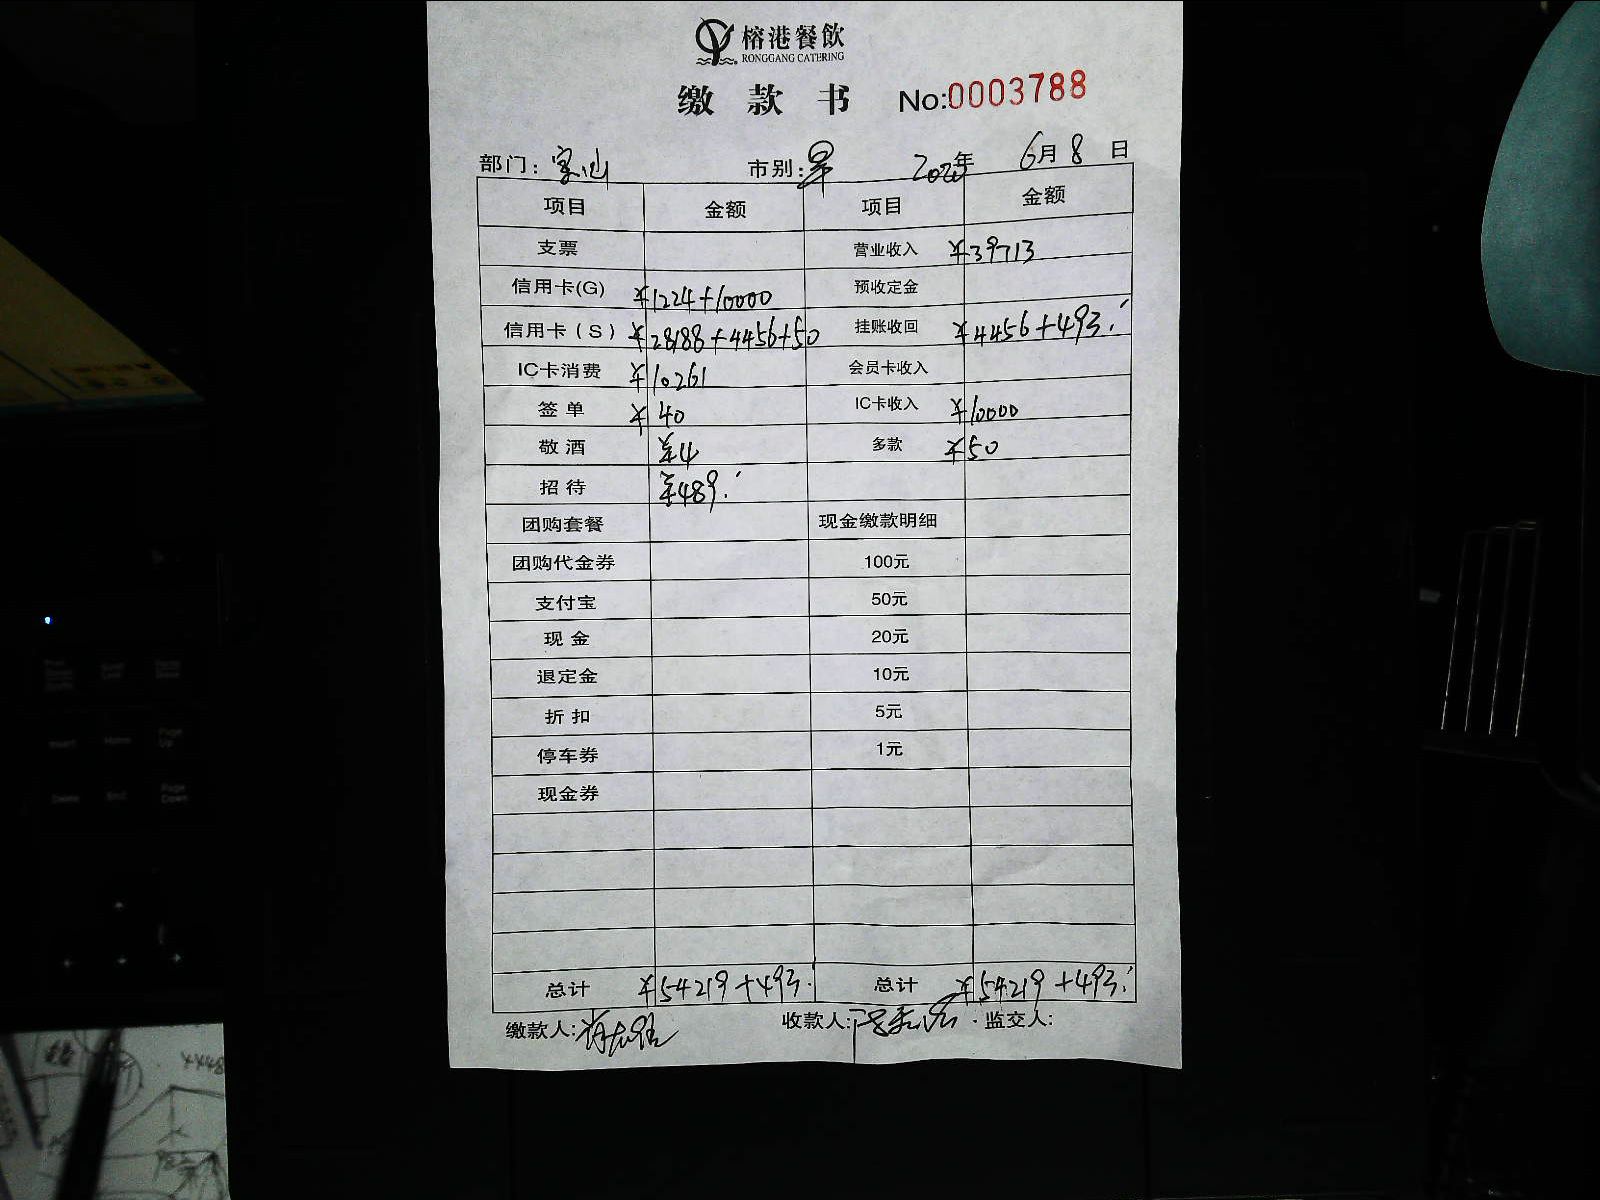 榕港餐飲
RONGGANG CATERING
缴款书 No:0003788
部门: 市别: 早 2020年 6月 8日
项目 金额 项目 金额
支票 营业收入 ¥39713
信用卡(G) ¥1224+10000 预收定金
信用卡(S) ¥28188+4456+50 挂账收回 ¥4456+493.
IC卡消费 ¥10261 会员卡收入
签单 ¥40 IC卡收入 ¥10000
敬酒 ¥4 多款 ¥50
招待 ¥489.
团购套餐 现金缴款明细
团购代金券 100元
支付宝 50元
现金 20元
退定金 10元
折扣 5元
停车券 1元
现金券
总计 ¥54219+493. 总计 ¥54219+493.
缴款人: 收款人: 监交人:
Insert Home Page Up
Delete End Page Down